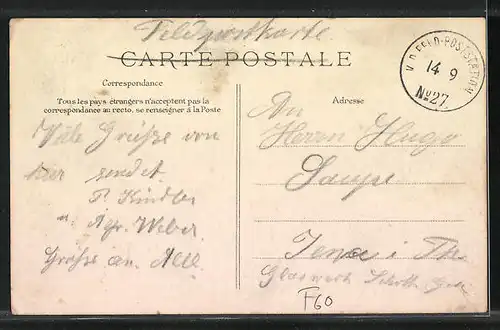 Feldpostkarte
CARTE POSTALE
K.D. FELD-POSTSTATION
14 9
No 27.
Correspondance
Tous les pays étrangers n'acceptent pas la
correspondance au recto, se renseigner à la Poste
Viele Grüsse von
hier sendet
P. Kindler
u. Weber
Grüsse an Alle
Adresse
An
Herrn Hugo
Jena i Th
Glaswerk Schott
F60